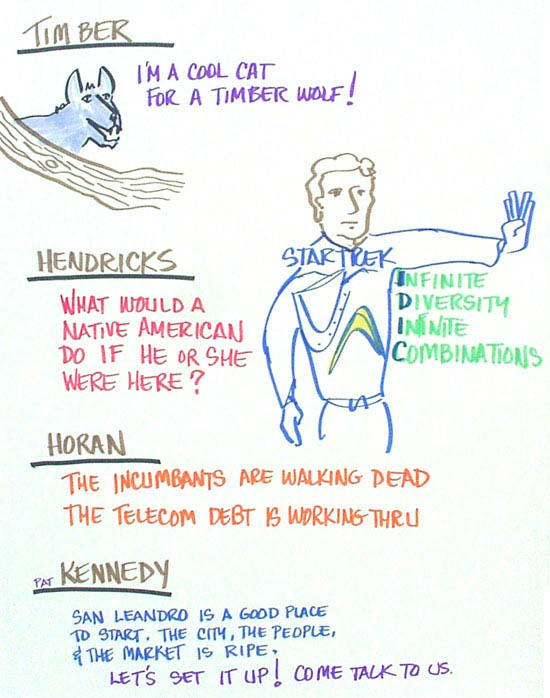 TIMBER
I'M A COOL CAT
FOR A TIMBER WOLF!
STAR TREK
INFINITE
DIVERSITY
INFINITE
COMBINATIONS
HENDRICKS
WHAT WOULD A
NATIVE AMERICAN
DO IF HE OR SHE
WERE HERE?
HORAN
THE INCUMBANTS ARE WALKING DEAD
THE TELECOM DEBT IS WORKING THRU
PAT KENNEDY
SAN LEANDRO IS A GOOD PLACE
TO START. THE CITY, THE PEOPLE,
& THE MARKET IS RIPE.
LET'S SET IT UP! COME TALK TO US.